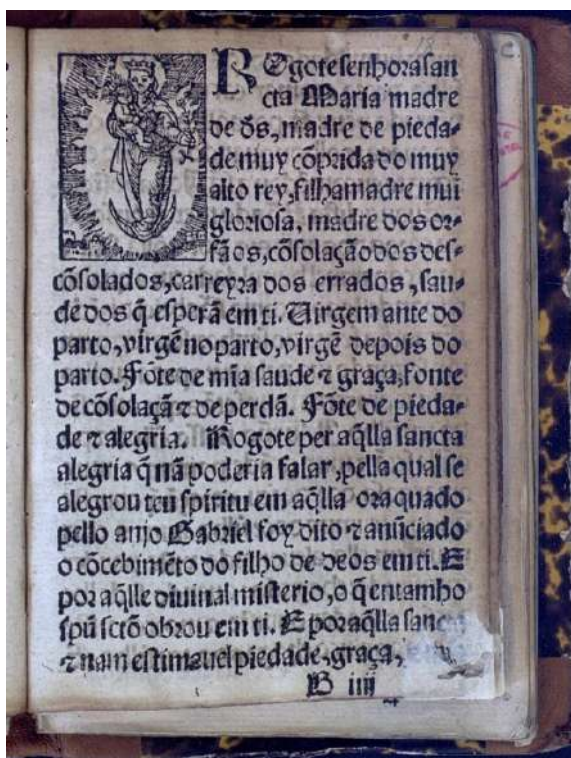 ROgotesenhorasan
cta Maria madre
de ds̃, madre de pieda-
de muy cõprida do muy
alto rey, filhamadre mui
gloriosa, madre dos or-
fãos, cõsolaçãodos des-
cõsolados, carreyra dos errados, sau-
de dos q̃ esperã em ti. Uirgem ante do
parto, virgẽ no parto, virgẽ depois do
parto. Fõte de mia saude ⁊ graça, fonte
de cõsolaçã ⁊ de perdã. Fõte de pieda-
de ⁊ alegria. Rogote per aq̃lla sancta
alegria q̃ nã poderia falar, pella qual se
alegrou teu spiritu em aq̃lla ora quado
pello anjo Gabriel foy dito ⁊ anũciado
o cõcebimẽto do filho de deos em ti. E
por aq̃lle diuinal misterio, o q̃ entam ho
spũ sctõ obrou em ti. E por aq̃lla
⁊ nam estimauel piedade, graça,
B iiij